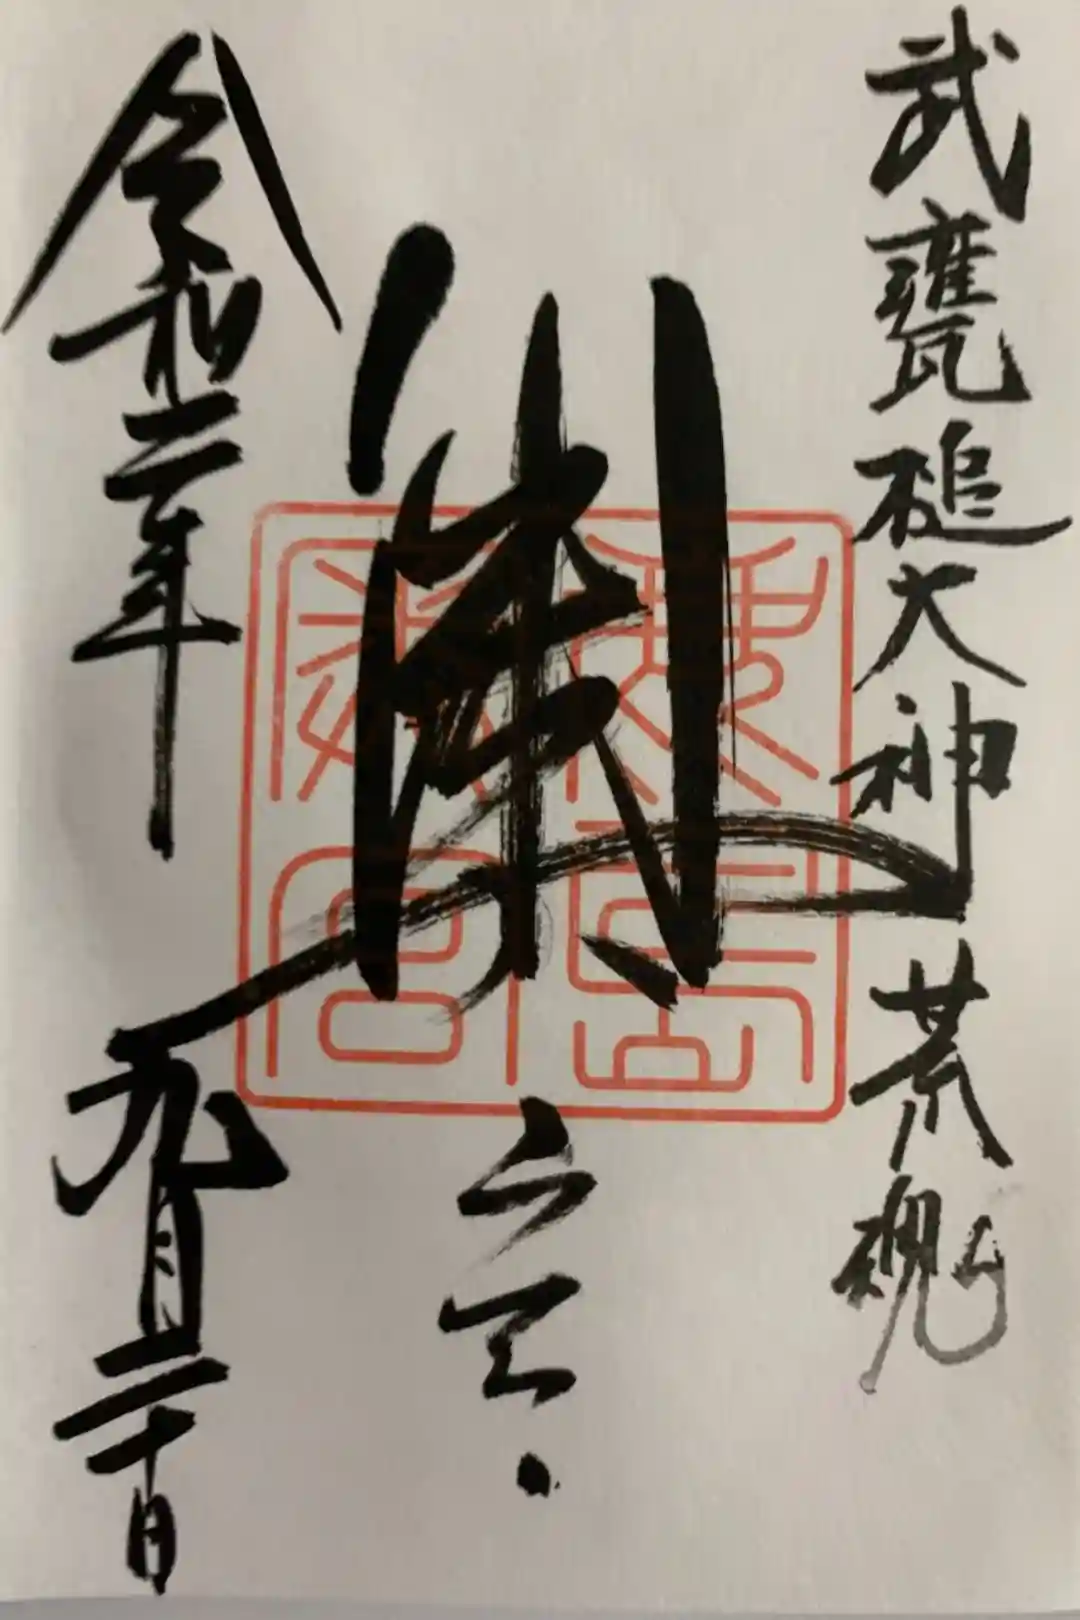 武甕槌大神荒魂
奥宮
令和二年九月二十日
鹿島奥宮